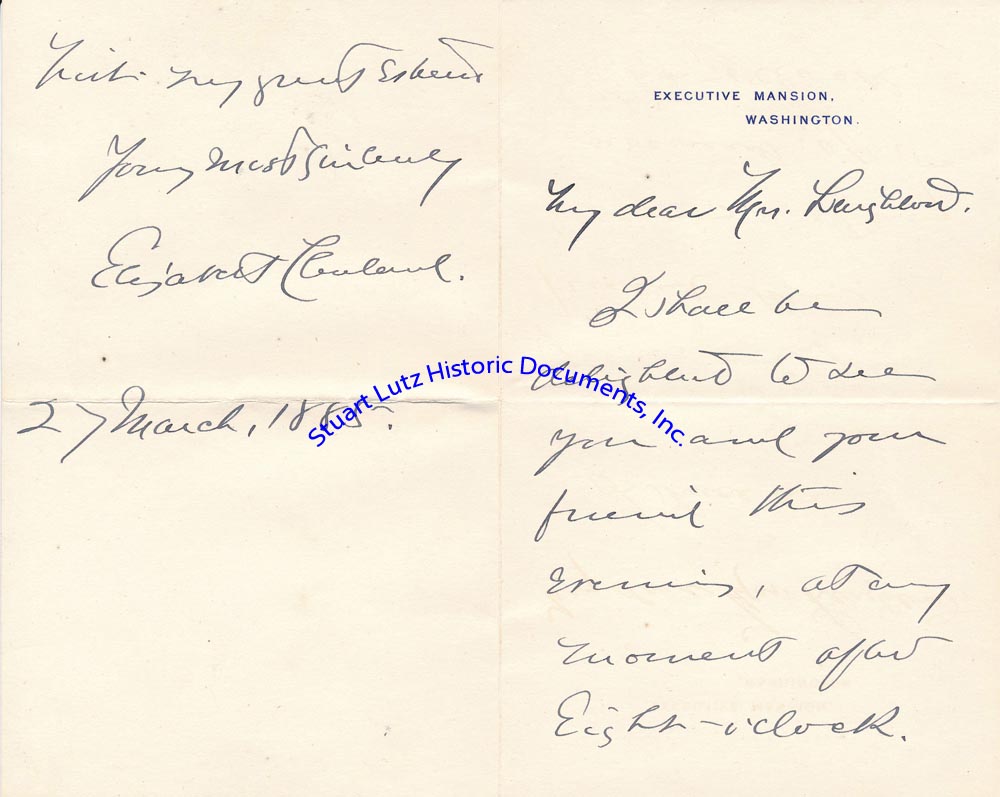 EXECUTIVE MANSION,
WASHINGTON.
My dear Mrs. Leighton.
I shall be
delighted to see
you and your
friend this
evening, at any
moment after
Eight-o'clock.
With my great Esteem
Yours Most Sincerely
Elizabeth Cleveland.
27 March, 1885.
Stuart Lutz Historic Documents, Inc.